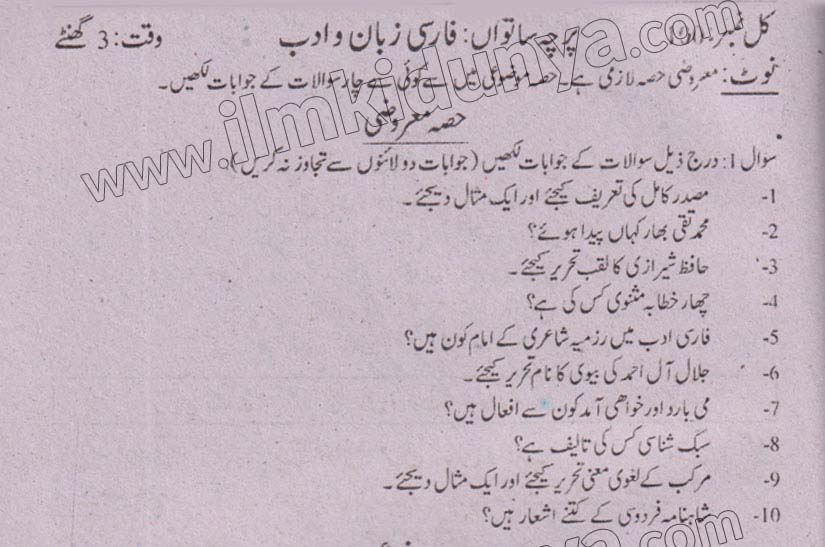 کل نمبر: پرچہ ساتواں: فارسی زبان و ادب وقت: 3 گھنٹے
نوٹ: معروضی حصہ لازمی ہے۔ حصہ موضوعی میں سے کوئی سے چار سوالات کے جوابات لکھیں۔
حصہ معروضی
سوال 1: درج ذیل سوالات کے جوابات لکھیں (جوابات دو لائنوں سے تجاوز نہ کریں)
1- مصدر کامل کی تعریف کیجئے اور ایک مثال دیجئے۔
2- محمد تقی بھار کہاں پیدا ہوئے؟
3- حافظ شیرازی کا لقب تحریر کیجئے۔
4- چھار خطابہ مثنوی کس کی ہے؟
5- فارسی ادب میں رزمیہ شاعری کے امام کون ہیں؟
6- جلال آل احمد کی بیوی کا نام تحریر کیجئے۔
7- می بارد اور خواھی آمد کون سے افعال ہیں؟
8- سبک شناسی کس کی تالیف ہے؟
9- مرکب کے لغوی معنی تحریر کیجئے اور ایک مثال دیجئے۔
10- شاہنامہ فردوسی کے کتنے اشعار ہیں؟
www.ilmkidunya.com
www.ilmkidunya.com